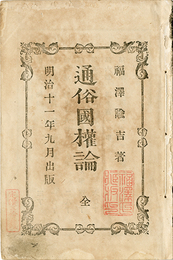 福澤諭吉著
通俗國權論
全
明治十一年九月出版